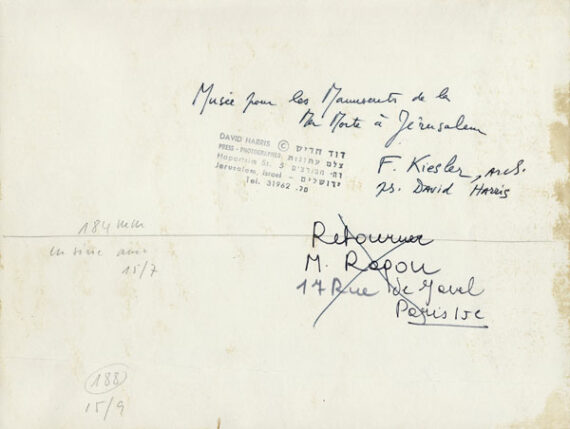 Musée pour les Manuscrits de la
Mer Morte à Jérusalem
DAVID HARRIS © דוד הריס
PRESS - PHOTOGRAPHER צלם עתונות
Haportzim St. 5 רח׳ הפורצים
Jerusalem, Israel - ירושלים
Tel. 31962 .טל
F. Kiesler, Arch.
Ps. David Harris
184 mm
15/7
Retourner
M. Ragon
17 Rue de Javel
Paris 15e
188
15/9